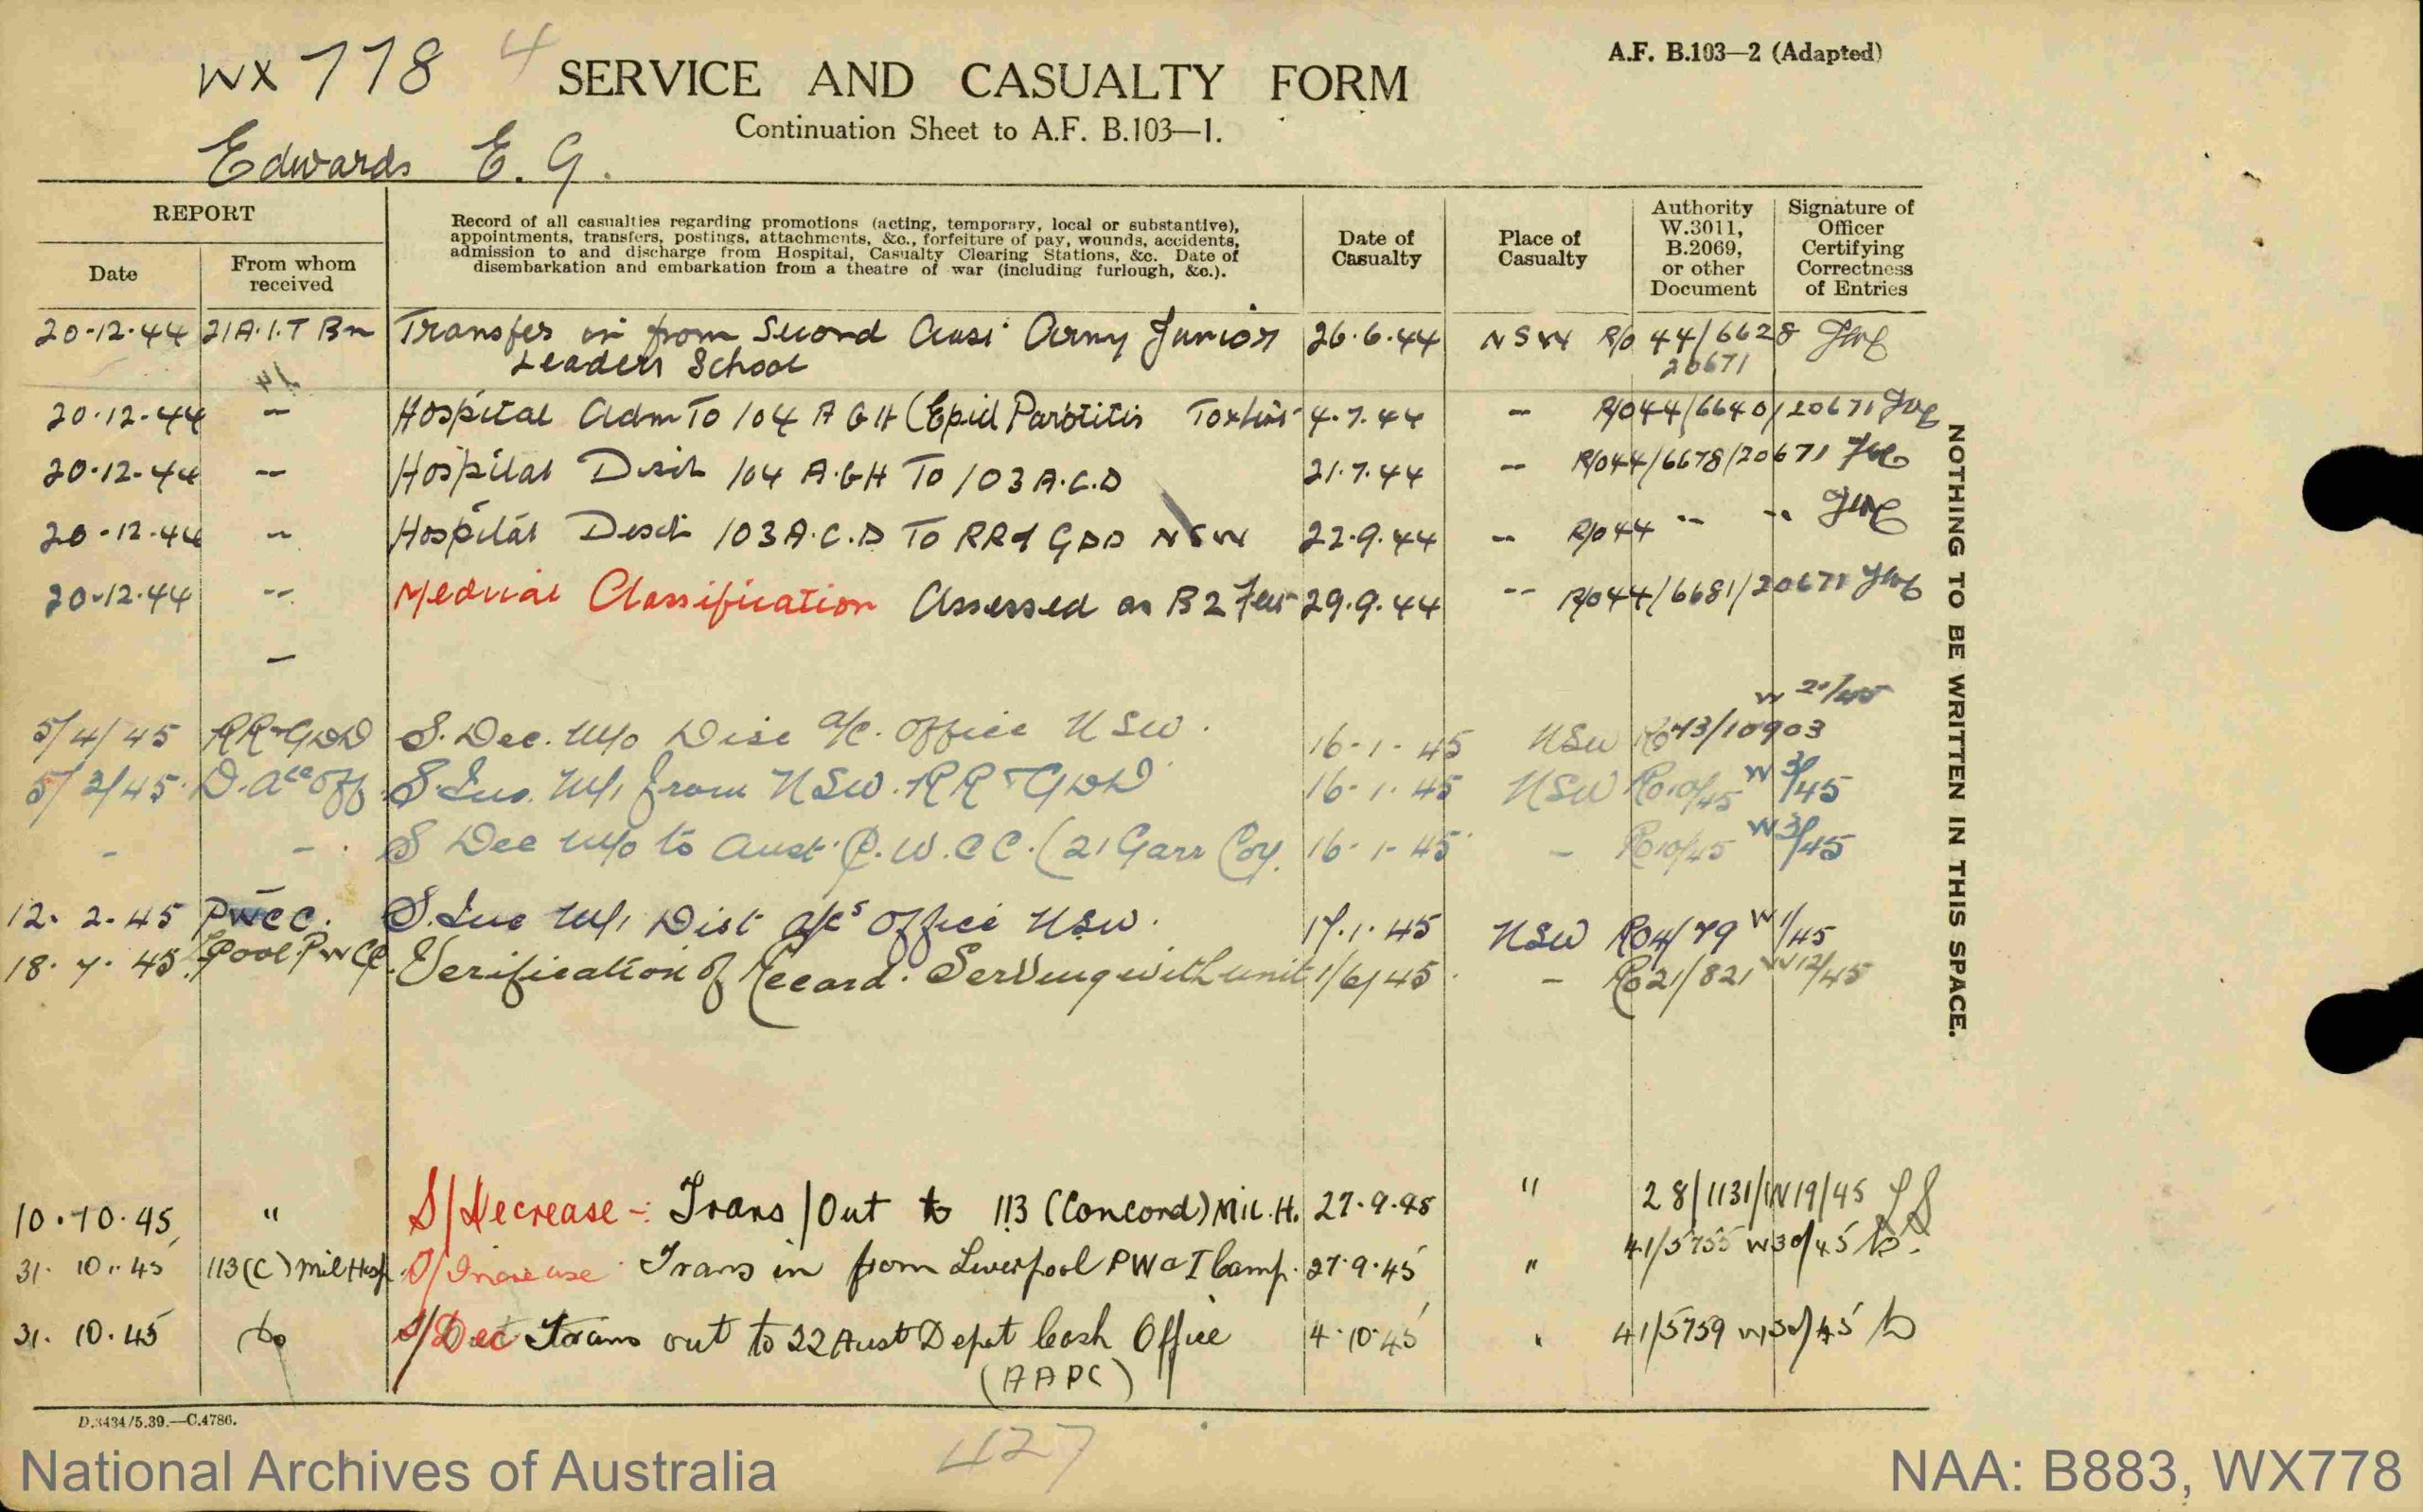 WX778 4
SERVICE AND CASUALTY FORM
A.F. B.103—2 (Adapted)
Continuation Sheet to A.F. B.103—1.
Edwards E. G.
REPORT
Date
From whom received
Record of all casualties regarding promotions (acting, temporary, local or substantive),
appointments, transfers, postings, attachments, &c., forfeiture of pay, wounds, accidents,
admission to and discharge from Hospital, Casualty Clearing Stations, &c. Date of
disembarkation and embarkation from a theatre of war (including furlough, &c.).
Date of Casualty
Place of Casualty
Authority W.3011, B.2069, or other Document
Signature of Officer Certifying Correctness of Entries
20-12-44 21 A.I.T Bn Transfer in from Second Aust Army Junior 26.6.44 NSW R/o 44/6628
Leaders School 20671
20-12-44 — Hospital Adm To 104 A G H (Epid Parotitis 4.7.44 — R/o44/6640/20671
20-12-44 — Hospital Disch 104 A.G.H To 103 A.C.D 21.7.44 — R/o44/6678/20671
20-12-44 — Hospital Disch 103 A.C.D To RR & GDD NSW 22.9.44 — R/o44 -- --
20-12-44 -- Medical Classification Assessed as B2 29.9.44 -- R/o44/6681/20671
—
W 21/45
5/4/45 RR & GDD S. Dec. M/o Dist a/c. Office NSW. 16-1-45 NSW Ro 43/10903
5/3/45. D. Acc Off. S. Inc. M/i from NSW. RR & GDD 16-1-45 NSW Ro10/45 W3/45
- - S Dec M/o to Aust. P.W.C C. (21 Garr Coy. 16-1-45 — Ro10/45 W3/45
12. 2. 45 PWCC. S. Inc M/i Dist a/cs Office NSW. 17.1.45 NSW Ro4/79 W1/45
18. 7. 45. Lpool. PWCC. Verification of Record. Serving with unit 1/6/45. — Ro21/821 W12/45
10.10.45, " S/Decrease -: Trans/Out to 113 (Concord) Mil. H. 27.9.45 " 28/1131/W19/45
31. 10. 45 113 (C) Mil Hosp S/Increase Trans in from Liverpool PW & I Camp. 27.9.45 " 41/5755 W30/45
31. 10. 45 Do S/Dec Trans out to 22 Aust Depot Cash Office 4.10.45 " 41/5759 W30/45
(AAPC)
NOTHING TO BE WRITTEN IN THIS SPACE.
D.3434/5.39.—C.4786.
427
National Archives of Australia
NAA: B883, WX778